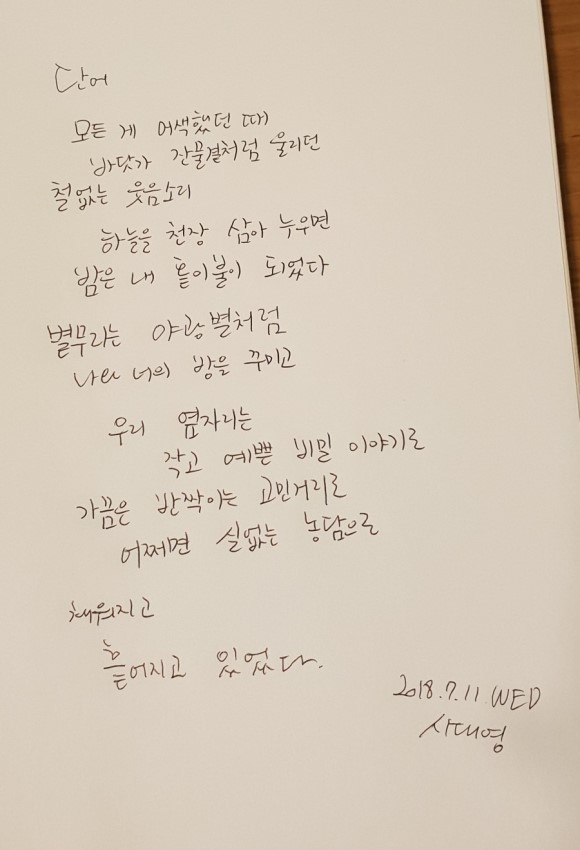 단어
모든 게 어색했던 때
바닷가 잔물결처럼 울리던
철없는 웃음소리
하늘을 천장 삼아 누우면
밤은 내 홑이불이 되었다
별무리는 야광별처럼
나와 너의 방을 꾸미고
우리 옆자리는
작고 예쁜 비밀 이야기로
가끔은 반짝이는 고민거리로
어쩌면 실없는 농담으로
채워지고
흩어지고 있었다.
2018.7.11 WED
사대영